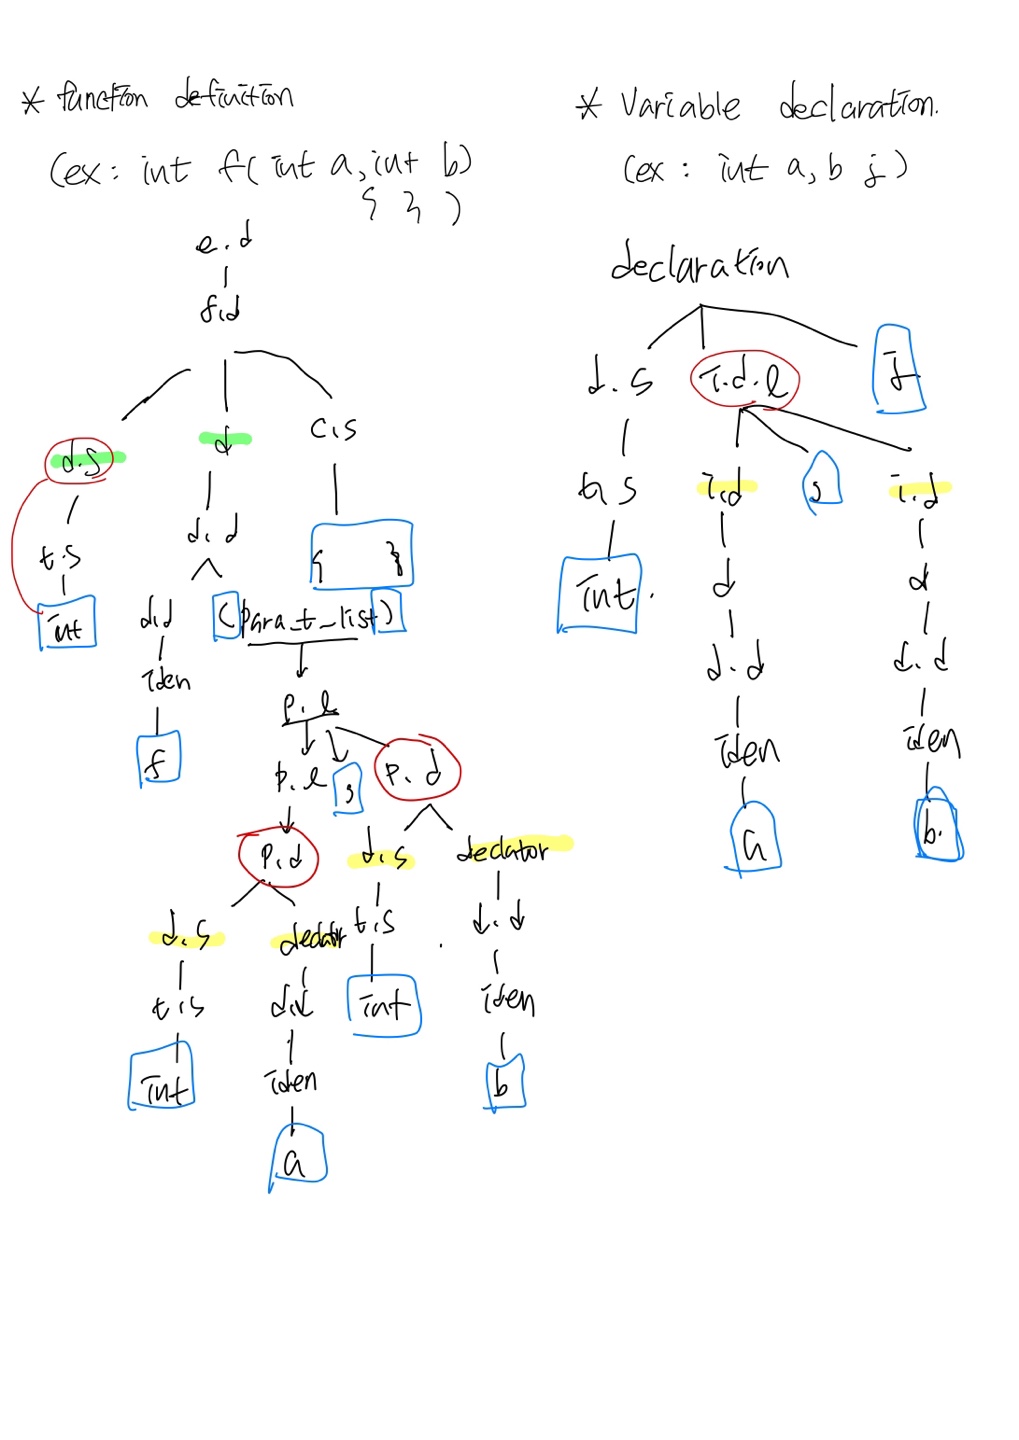 * function definition
(ex: int f( int a, int b)
{ } )
e.d
f.d
d.s d c.s
t.s d.d { }
int d.d ( para_t_list )
iden p.l
f p.l , p.d
p.d d.s declator
d.s declator t.s d.d
t.s d.d int iden
int iden b
a
* Variable declaration.
(ex : int a, b ; )
declaration
d.s i.d.l ;
t.s i.d , i.d
int. d d
d.d d.d
iden iden
a b.